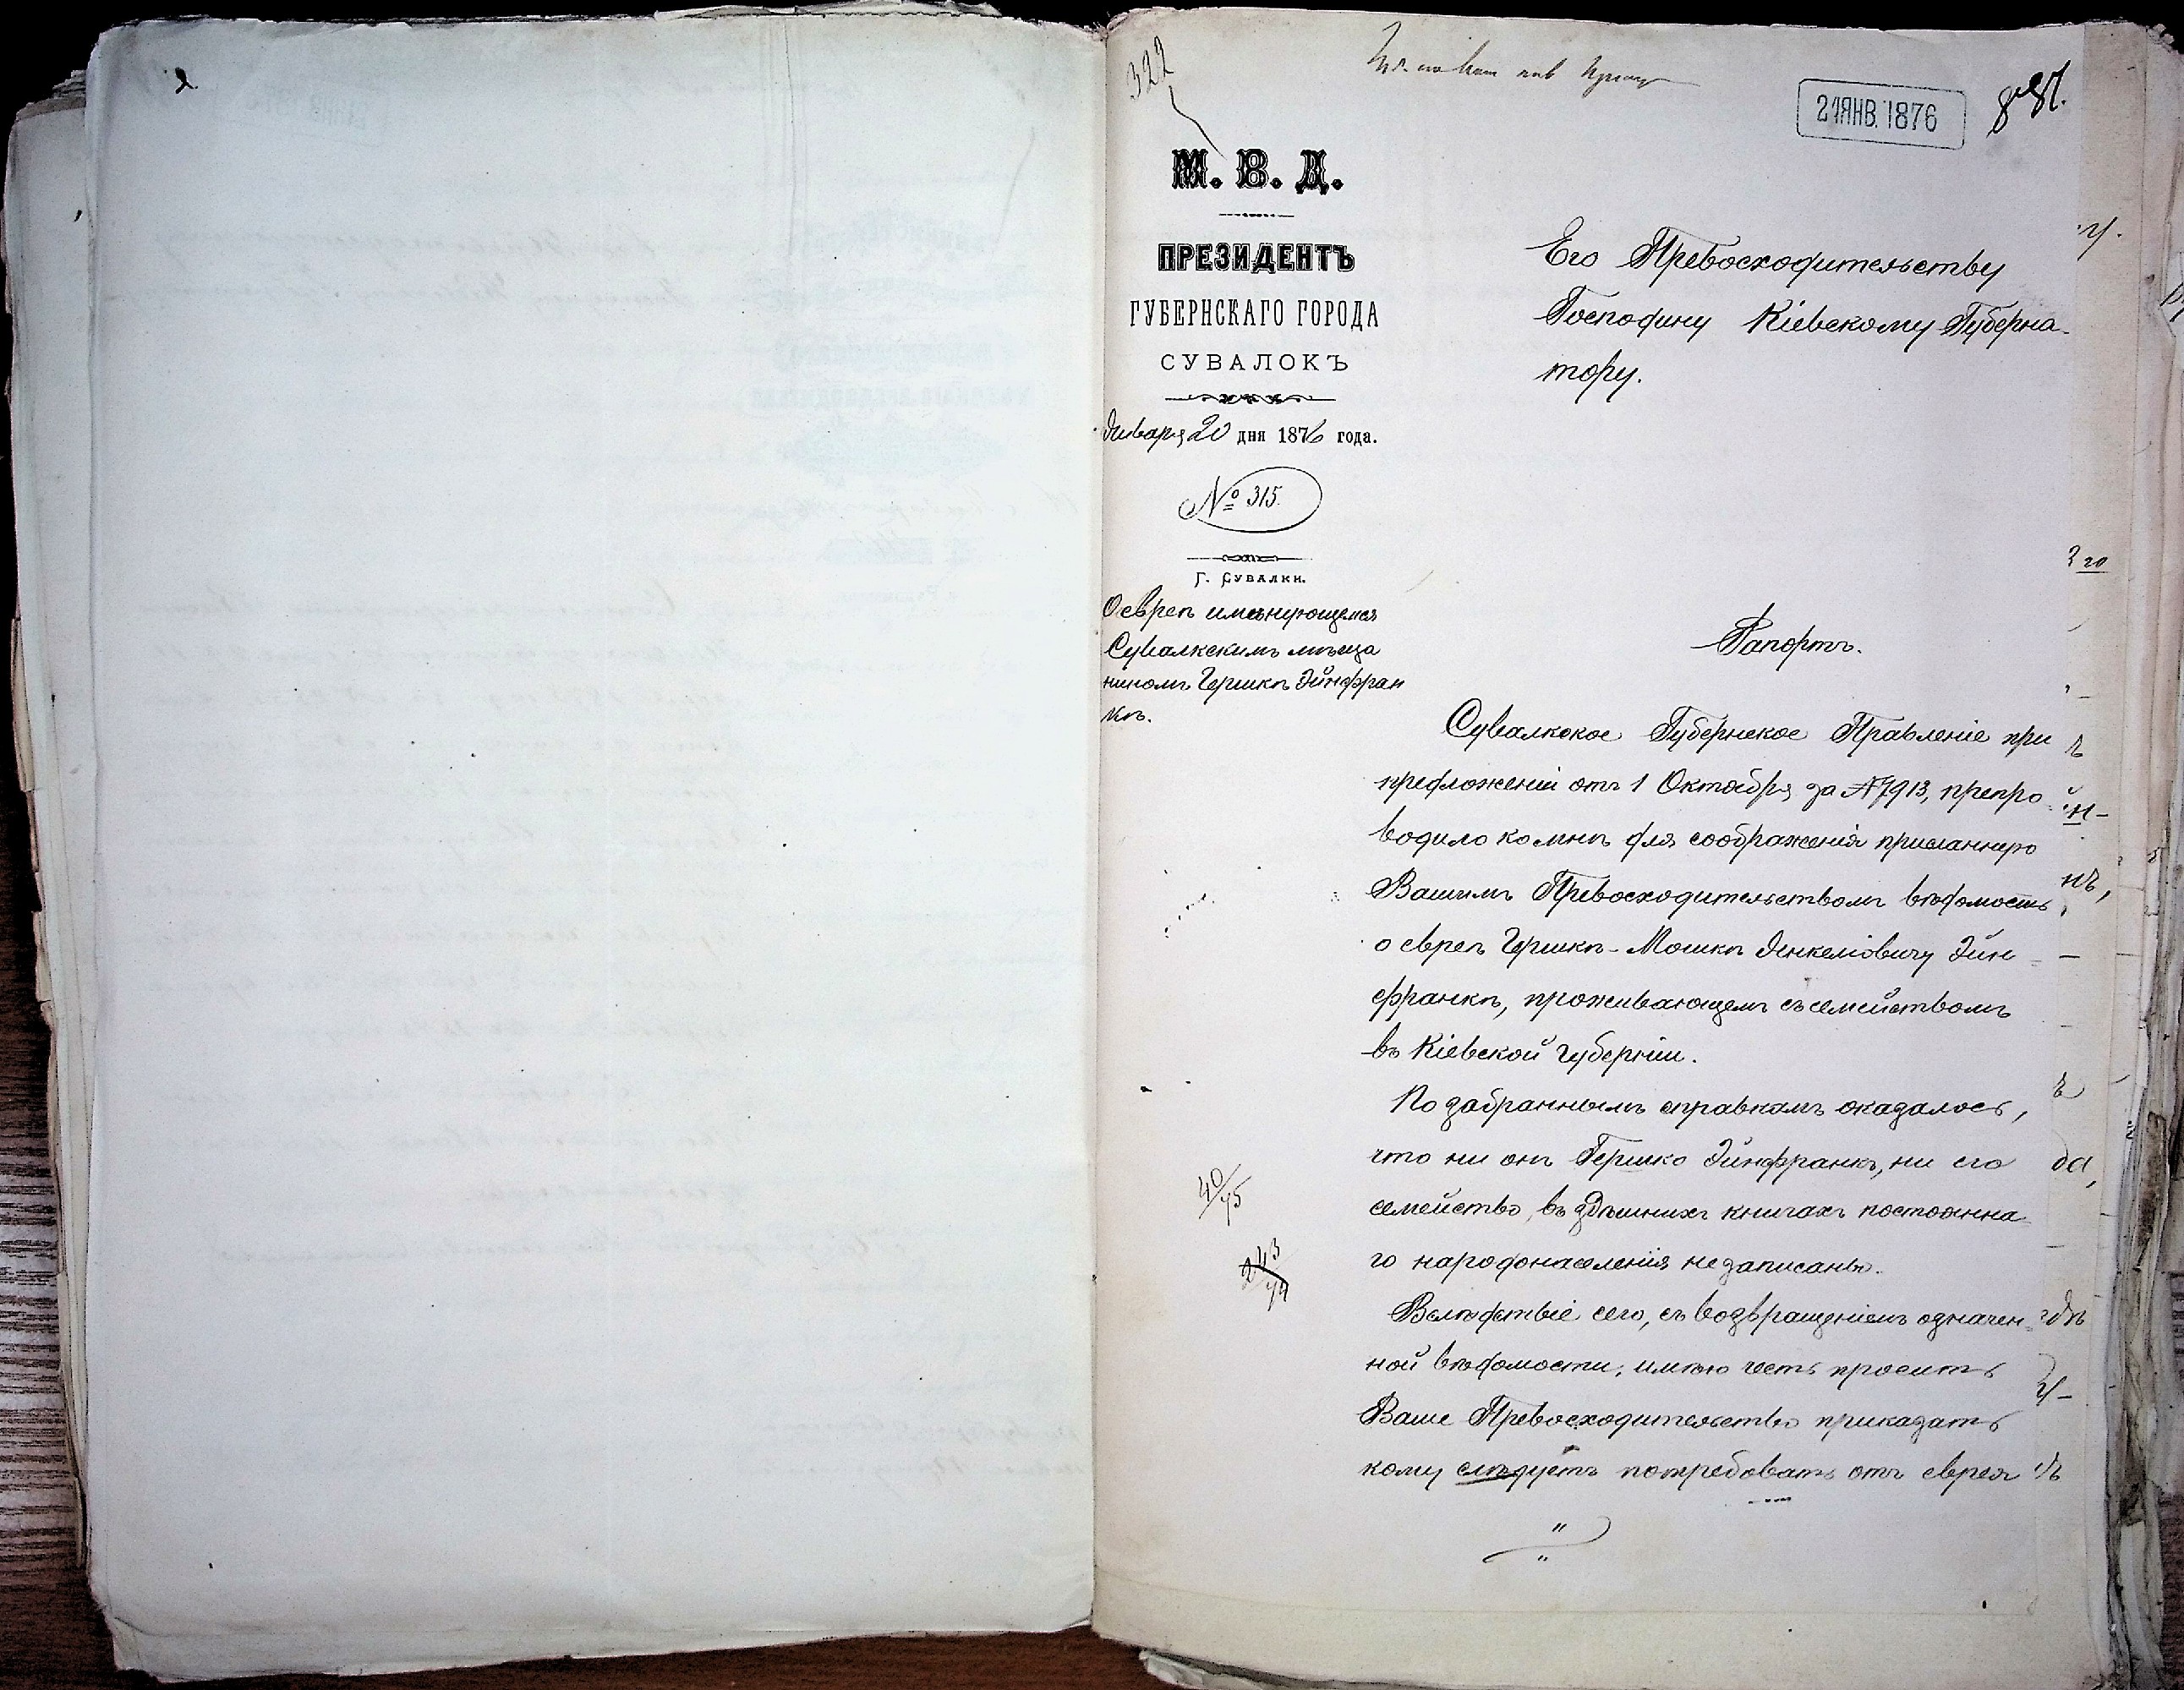 322
21 ЯНВ. 1876
М. В. Д.
ПРЕЗИДЕНТЪ
ГУБЕРНСКАГО ГОРОДА
СУВАЛОКЪ
Января 20 дня 1876 года.
№ 315.
Г. Сувалки.
О евреѣ именующемся
Сувалкскимъ мѣща
ниномъ Гершкѣ Эйнфран
кѣ.
Его Превосходительству
Господину Кіевскому Губерна-
тору.
Рапортъ.
Сувалкское Губернское Правленіе при
предложеніи отъ 1 Октября за № 7913, препро
водило ко мнѣ для соображенія присланную
Вашимъ Превосходительствомъ вѣдомость
о евреѣ Гершкѣ-Мошкѣ Янкеліовичу Эйн
франкѣ, проживающемъ съ семействомъ
въ Кіевской губерніи.
По забраннымъ справкамъ оказалось,
что ни онъ Гершко Эйнфранкъ, ни его
семейство, въ здѣшнихъ книгахъ постоянна
го народонаселенія не записаны.
Вслѣдствіе сего, съ возвращеніемъ означен
ной вѣдомости, имѣю честь просить
Ваше Превосходительство приказать
кому слѣдуетъ потребовать отъ еврея
40/75
243/74